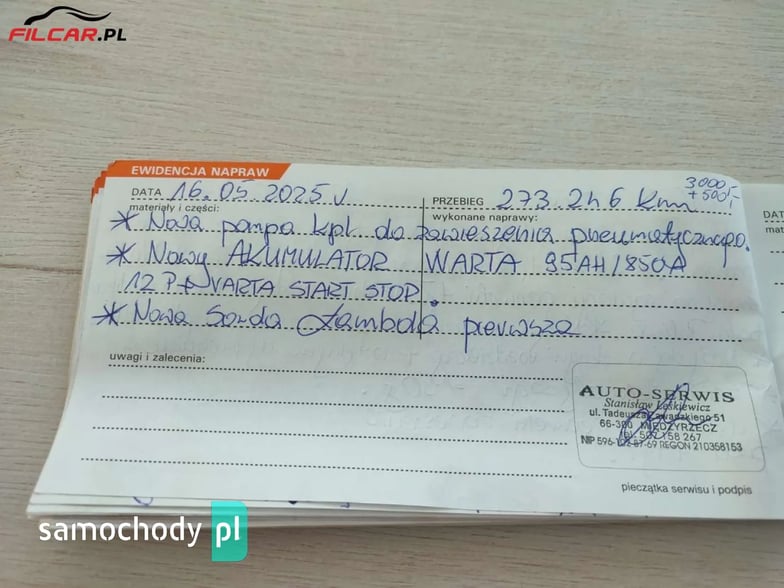 FILCAR.PL
EWIDENCJA NAPRAW
DATA 16.05.2025 r PRZEBIEG 273 246 Km 3000,- + 500,-
materiały i części: wykonane naprawy:
* Nowa pompa kpl. do zawieszenia pneumatycznego.
* Nowy AKUMULATOR WARTA 95AH/850A
12 P+ VARTA START STOP.
* Nowa Sonda Lambda pierwsza
uwagi i zalecenia:
AUTO-SERWIS
Stanisław Leśkiewicz
ul. Tadeusza 51
66-300 MIĘDZYRZECZ
158 267
NIP 596- -87-69 REGON 210358153
pieczątka serwisu i podpis
DA
mat
samochody pl